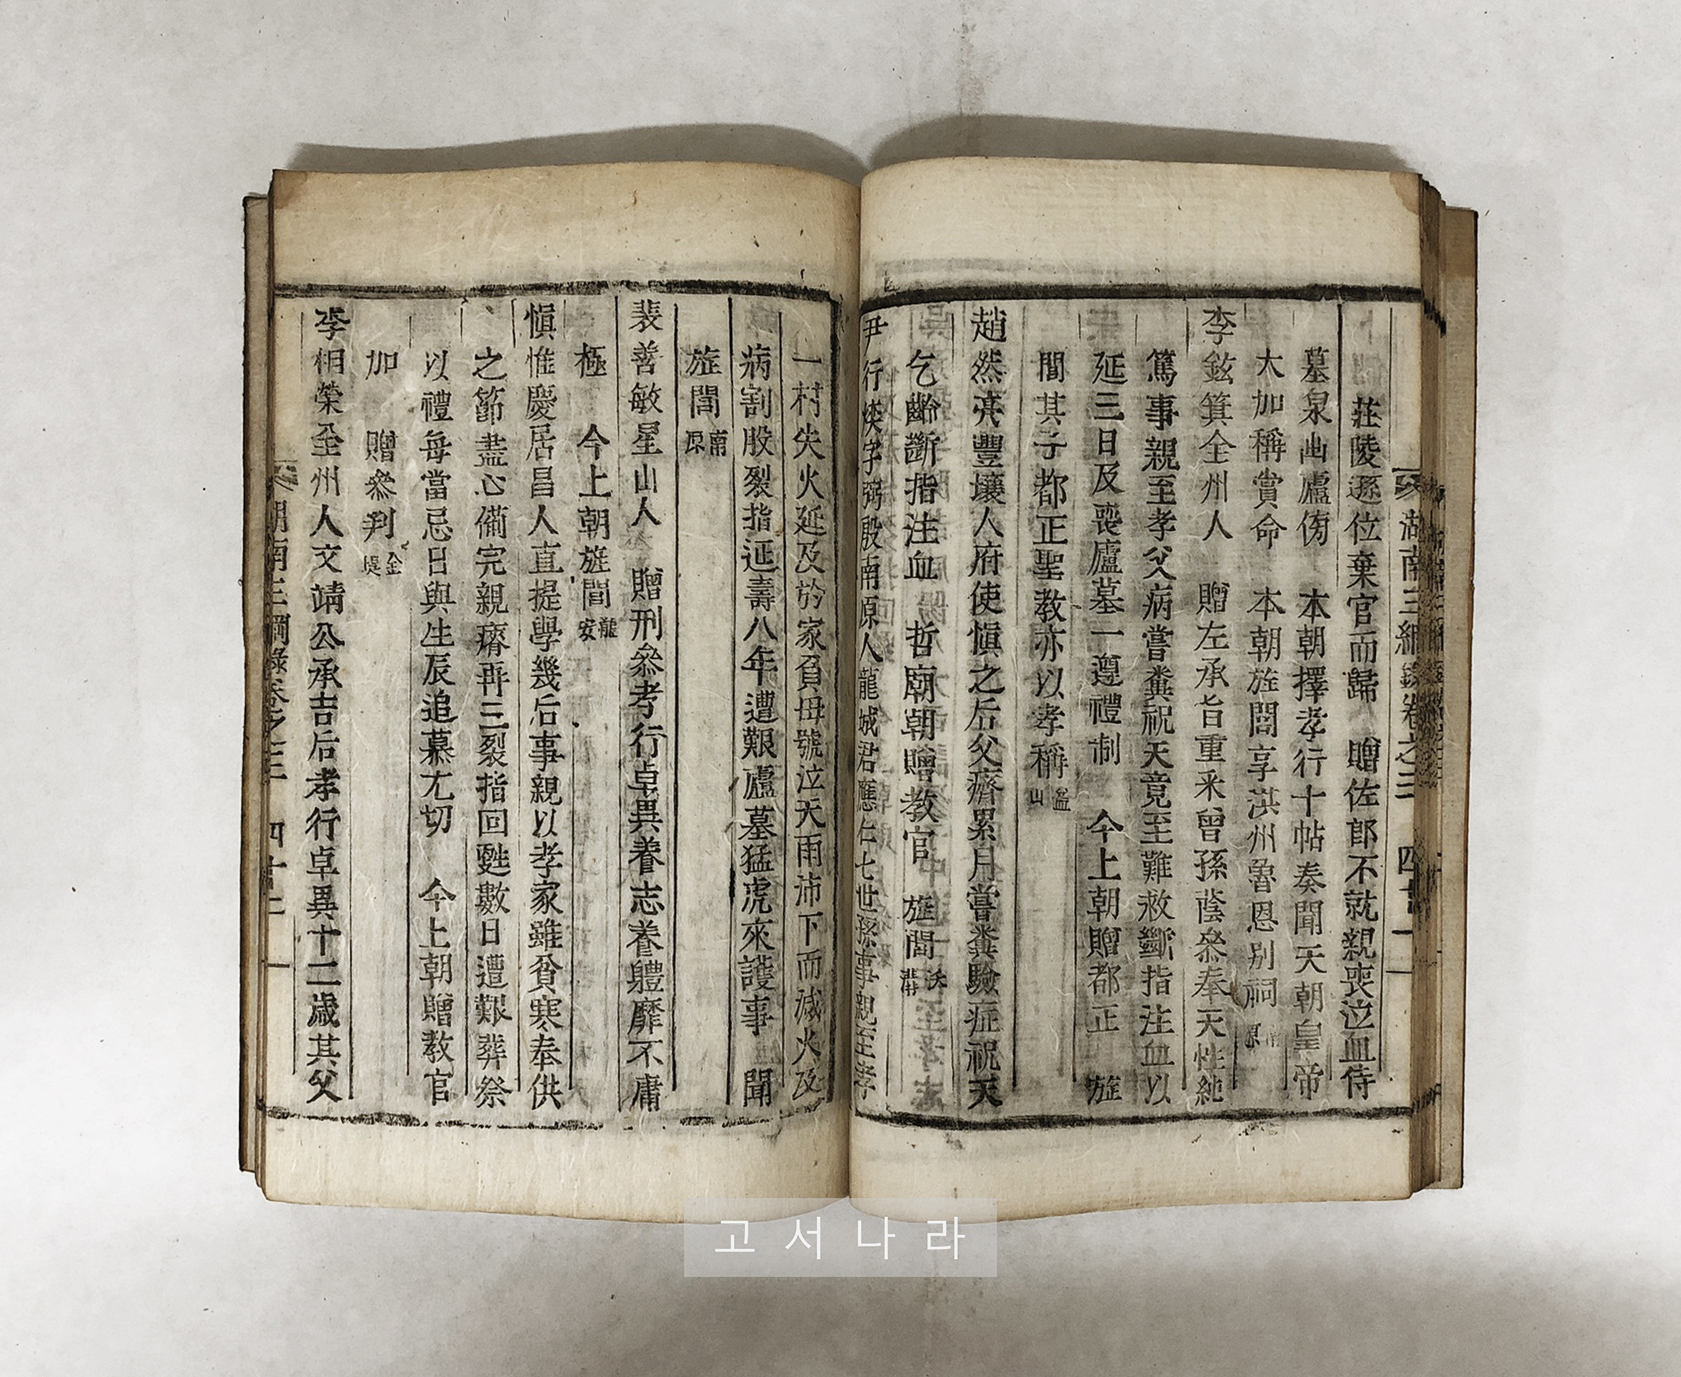 湖南三綱錄卷之三 四十一
莊陵遜位棄官而歸 贈佐郎不就親喪泣血侍
墓泉幽廬傍 本朝擇孝行十帖奏聞天朝皇帝
大加稱賞命 本朝旌閭享淇州魯恩别祠 南原
李鉉箕全州人 贈左承旨重釆曾孫蔭叅奉天性純
篤事親至孝父病嘗糞祝天竟至難救斷指注血以
延三日及喪廬墓一遵禮制 今上朝贈都正 旌
閭其子都正聖教亦以孝稱 益山
趙然亮豐壤人府使愼之后父癠累月嘗糞驗症祝天
乞齡斷指注血 哲廟朝贈教官 旌閭 沃溝
尹行 字弼殷南原人龍城君應仁七世孫事親至孝
一村失火延及於家負母號泣天雨沛下而滅火及
病割股裂指延壽八年遭艱廬墓猛虎來護事 聞
旌閭 南原
裴善敏星山人 贈刑叅孝行卓異養志養軆靡不庸
極 今上朝旌閭 龍安
愼惟慶居昌人直提學幾后事親以孝家雖貧寒奉供
之節盡心備完親癠再三裂指回甦數日遭艱葬祭
以禮每當忌日與生辰追慕尤切 今上朝贈教官
加 贈叅判 金堤
李相榮全州人文靖公承吉后孝行卓異十二歲其父
湖南三綱錄卷之三 四十二
고서나라